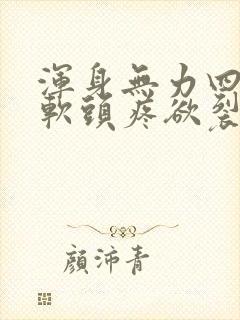 渾身無力四
軟頭疼欲裂
顏沛青